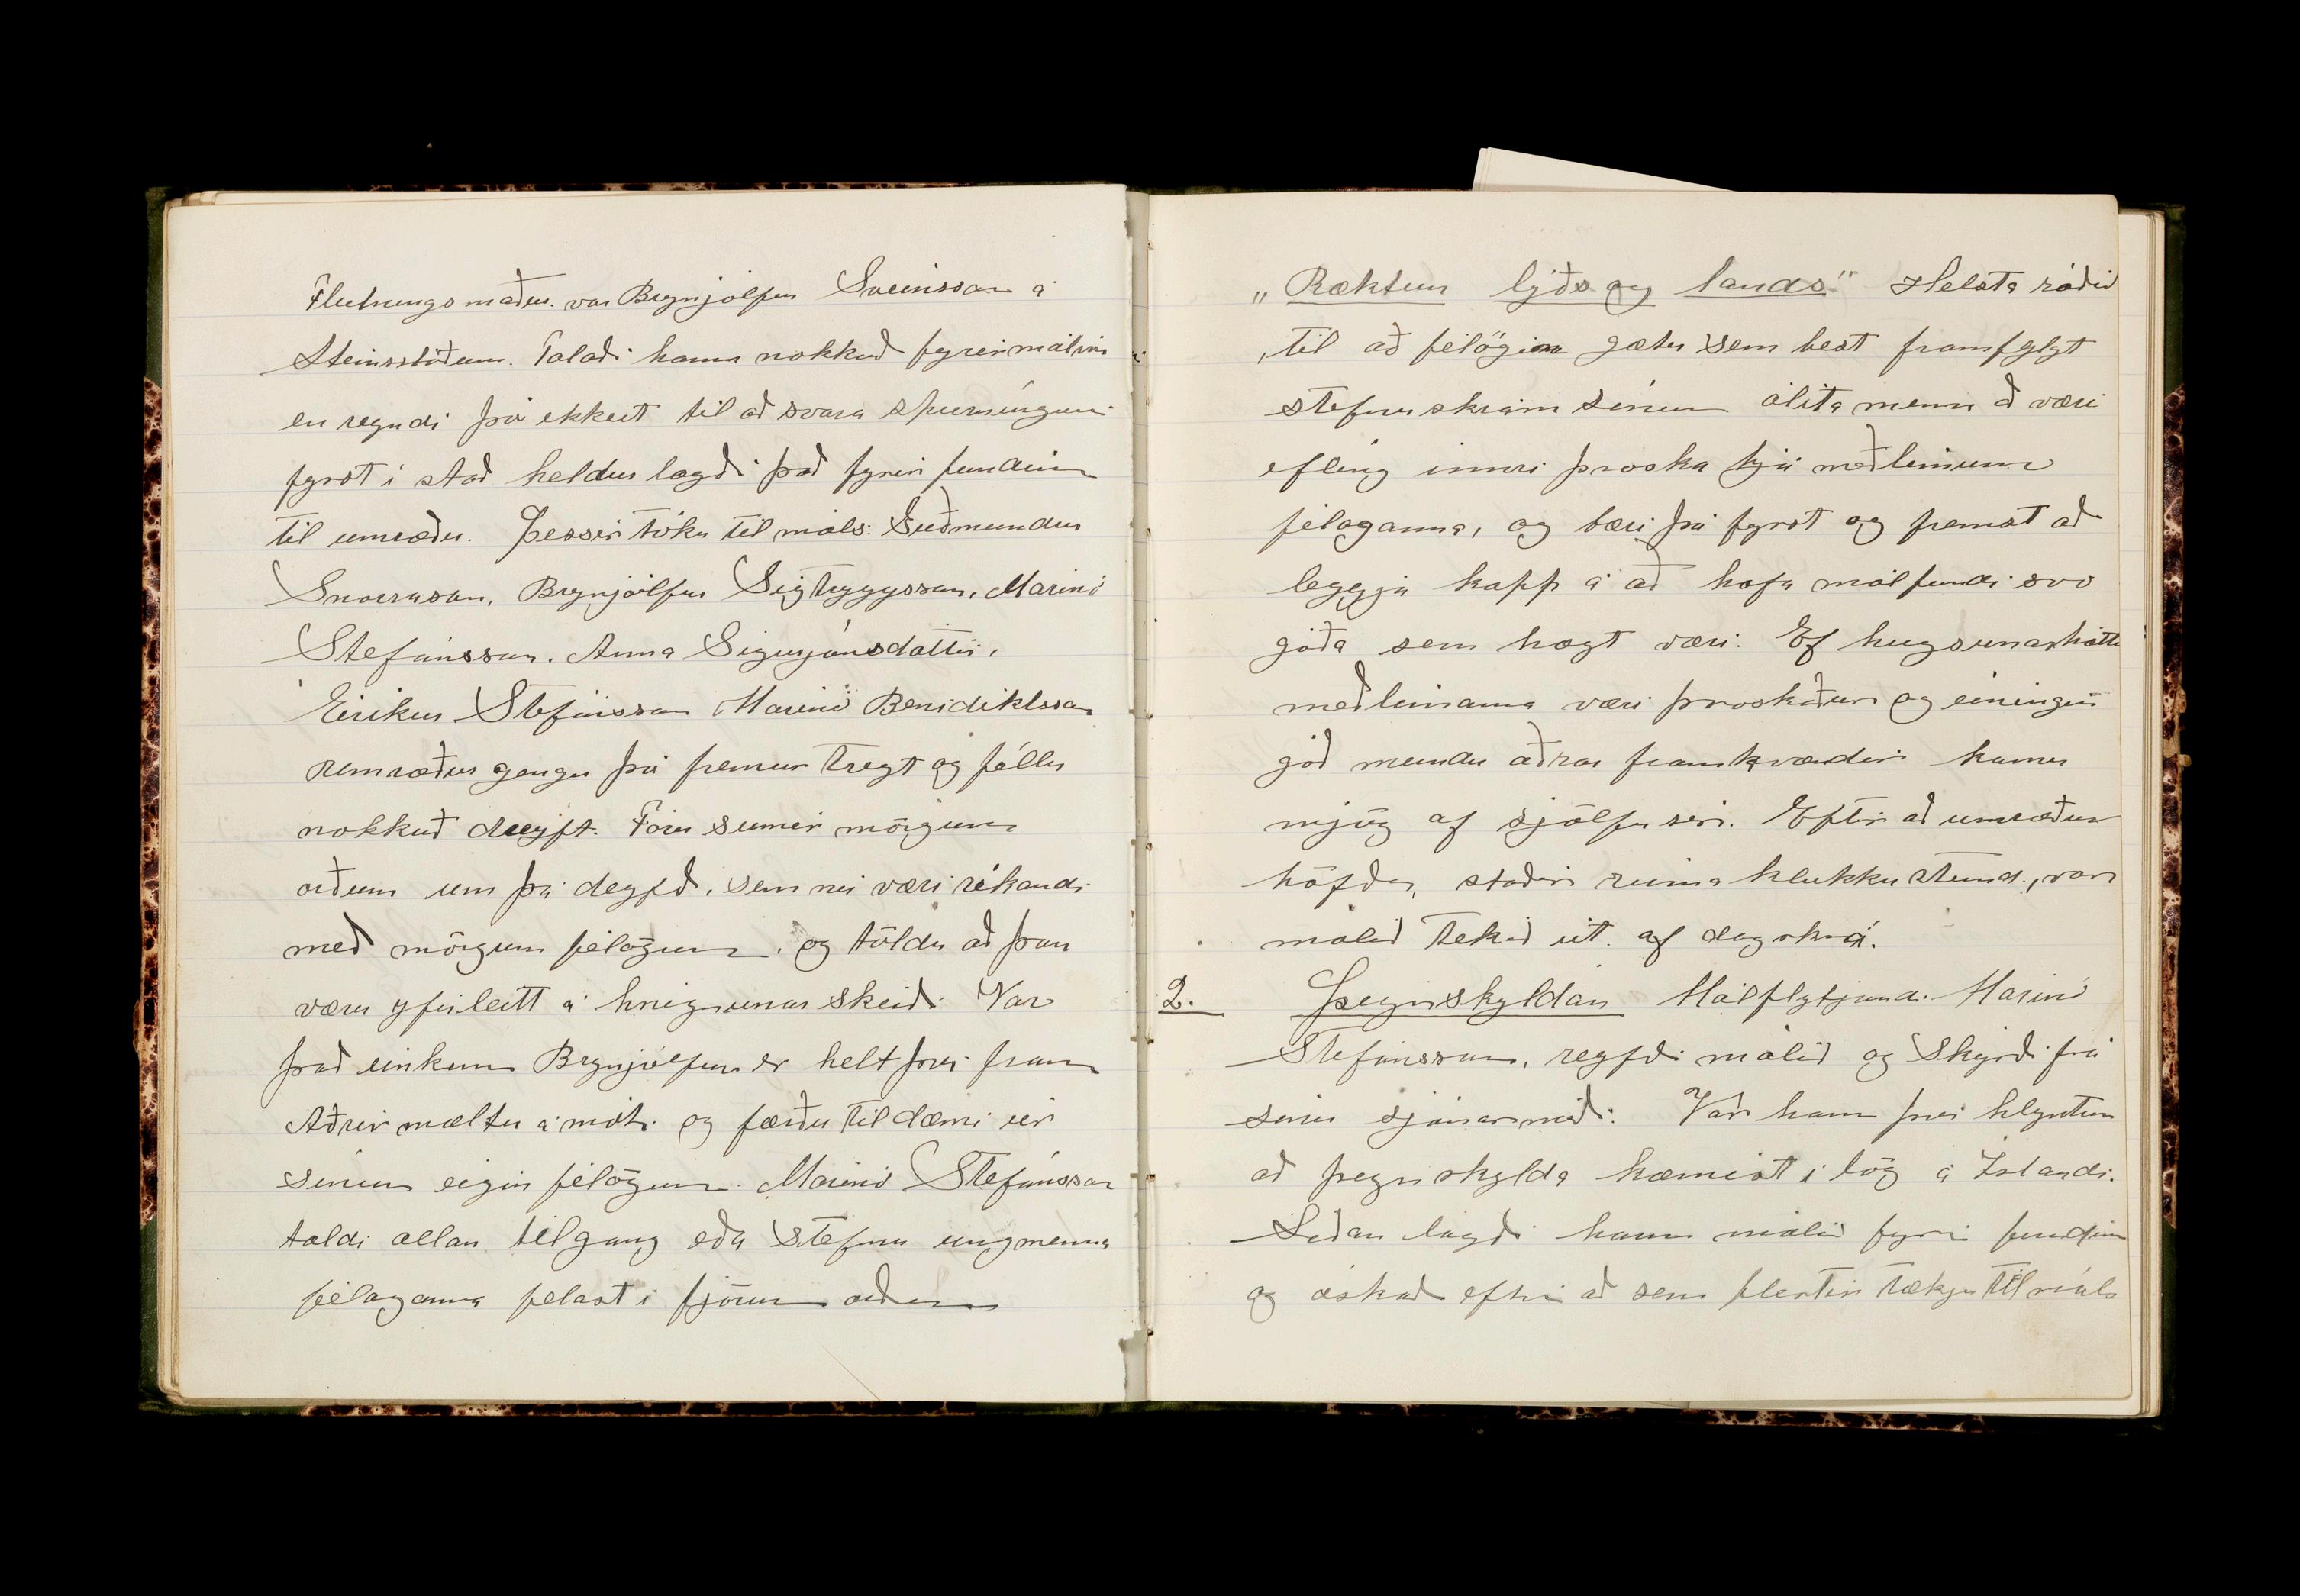 Flutningsmaður var Brynjólfur Sveinsson á
Steinsstöðum. Talaði hann nokkuð fyrir málinu
en reyndi þó ekkert til að svara spurningunni
fyrst í stað heldur lagði það fyrir fundinn
til umræðu. Þessir tóku til máls: Guðmundur
Snorrason, Brynjólfur Sigtryggsson, Marinó
Stefánsson, Anna Sigurjónsdóttir,
Eiríkur Stefánsson Marinó Benidiktsson
Umræður gengu þó fremur tregt og féllu
nokkuð dreyft. Fóru sumir mörgum
orðum um þá deyfð, sem nú væri ríkandi
með mörgum félögum, og töldu að þau
væru yfirleitt á hnignunar skeiði. Var
það einkum Brynjólfur er helt því fram
Aðrir mæltu á móti og færðu til dæmi úr
sínum eigin félögum. Marinó Stefánsson
taldi allan tilgang eða stefnu ungmenna
félaganna felast í fjórum orðum
„Ræktun lýðs og lands" Helsta ráðið
til að félögin gætu sem best framfylgt
stefnuskrám sínum álíta menn að væri
efling innri þroska hjá meðlimum
félaganna, og bæri þá fyrst og fremst að
leggja kapp á að hafa málfundi svo
góða sem hægt væri. Ef hugsunarháttur
meðlimanna væri þroskaður og einingin
góð mundu aðrar framkvæmdir koma
mjög af sjálfu séri. Eftir að umræður
höfðu staðið rúma klukkustund, var
málið tekið út af dagskrá.
2. Þegnskyldan Málflytjandi Marinó
Stefánsson, reyfði málið og skýrði frá
sínu sjónarmiði. Var hann því hlyntur
að þegnskylda kæmist í lög á Íslandi.
Síðan lagði hann málið fyrir fundinn
og óskað eftir að sem flestir tækju til máls